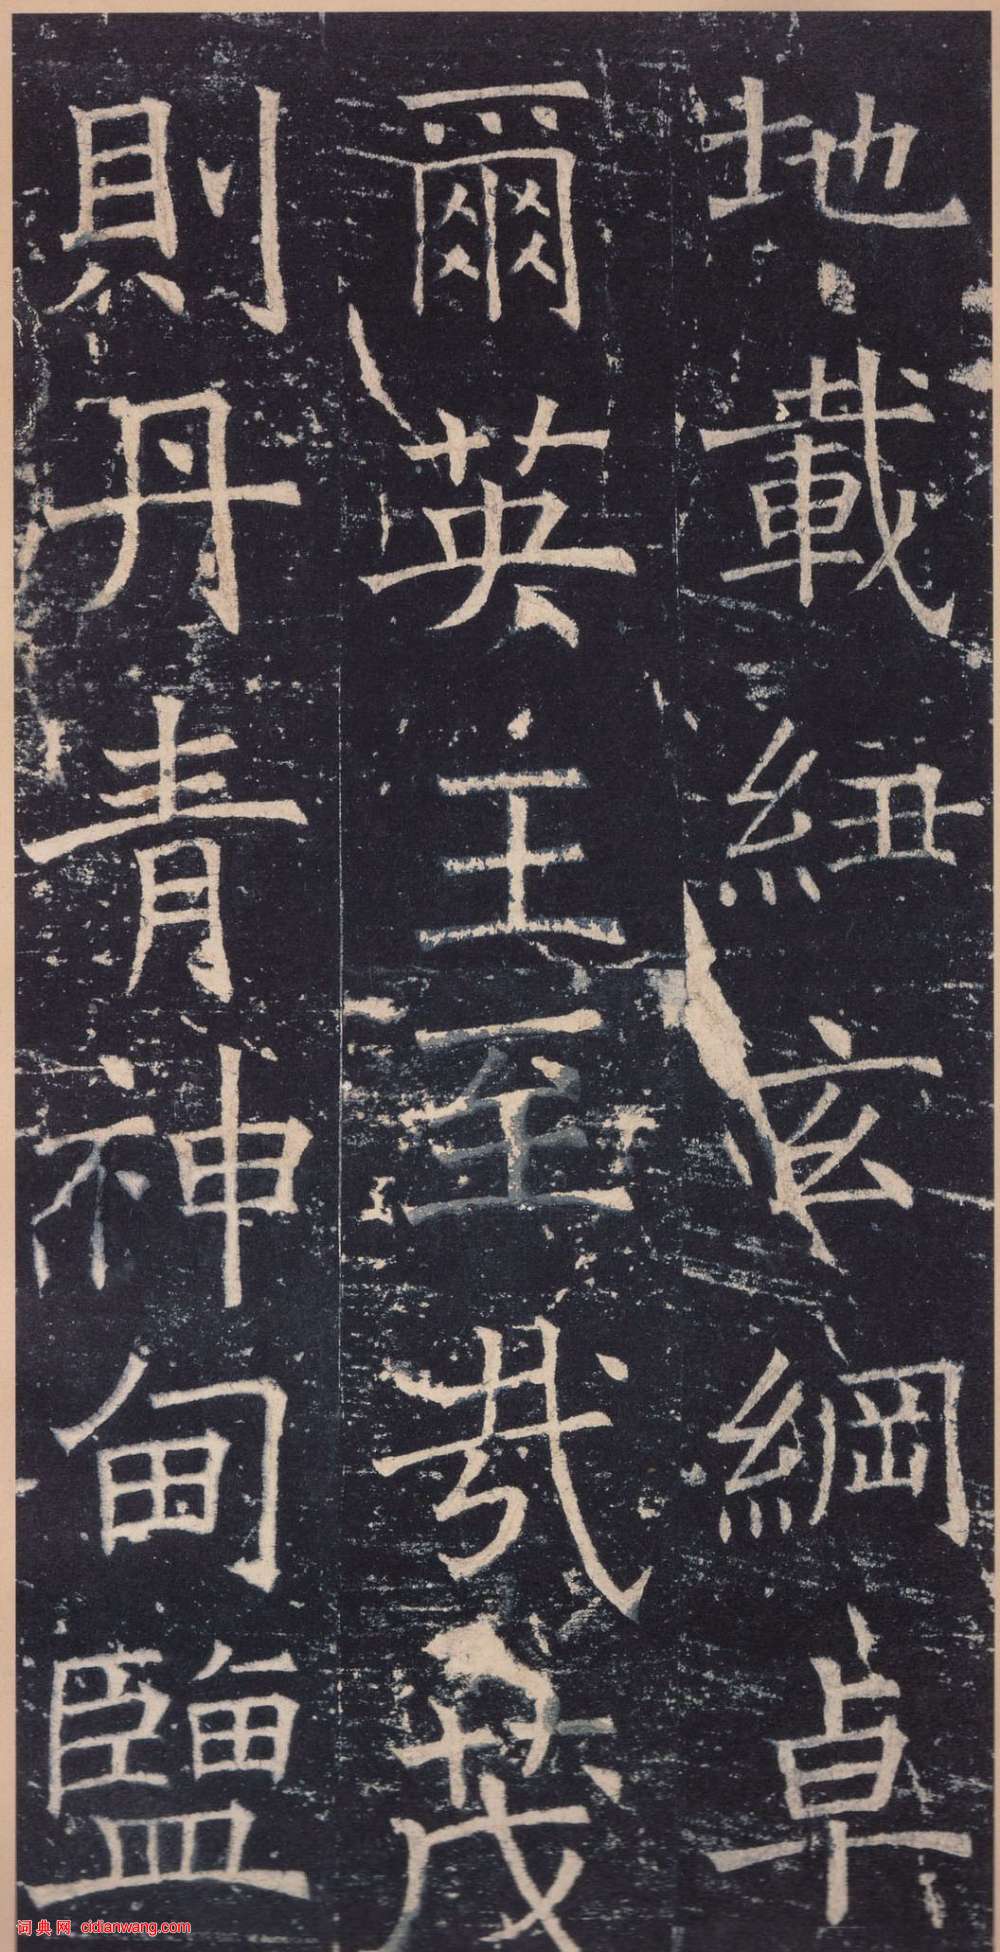 地載紐玄綱卓
爾英王至哉茂
則丹青神甸鹽
词典网 cidianwang.com